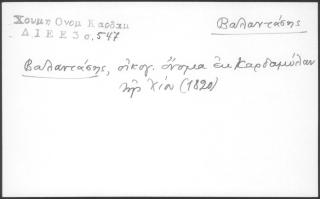 Χουμη Ονομ Καρδαμ
ΔΙΕΕ 30,547
Βαλαντάσης
Βαλαντάσης, οἰκογ. ὄνομα ἐκ Καρδαμύλων
τῆς Χίου (1820)